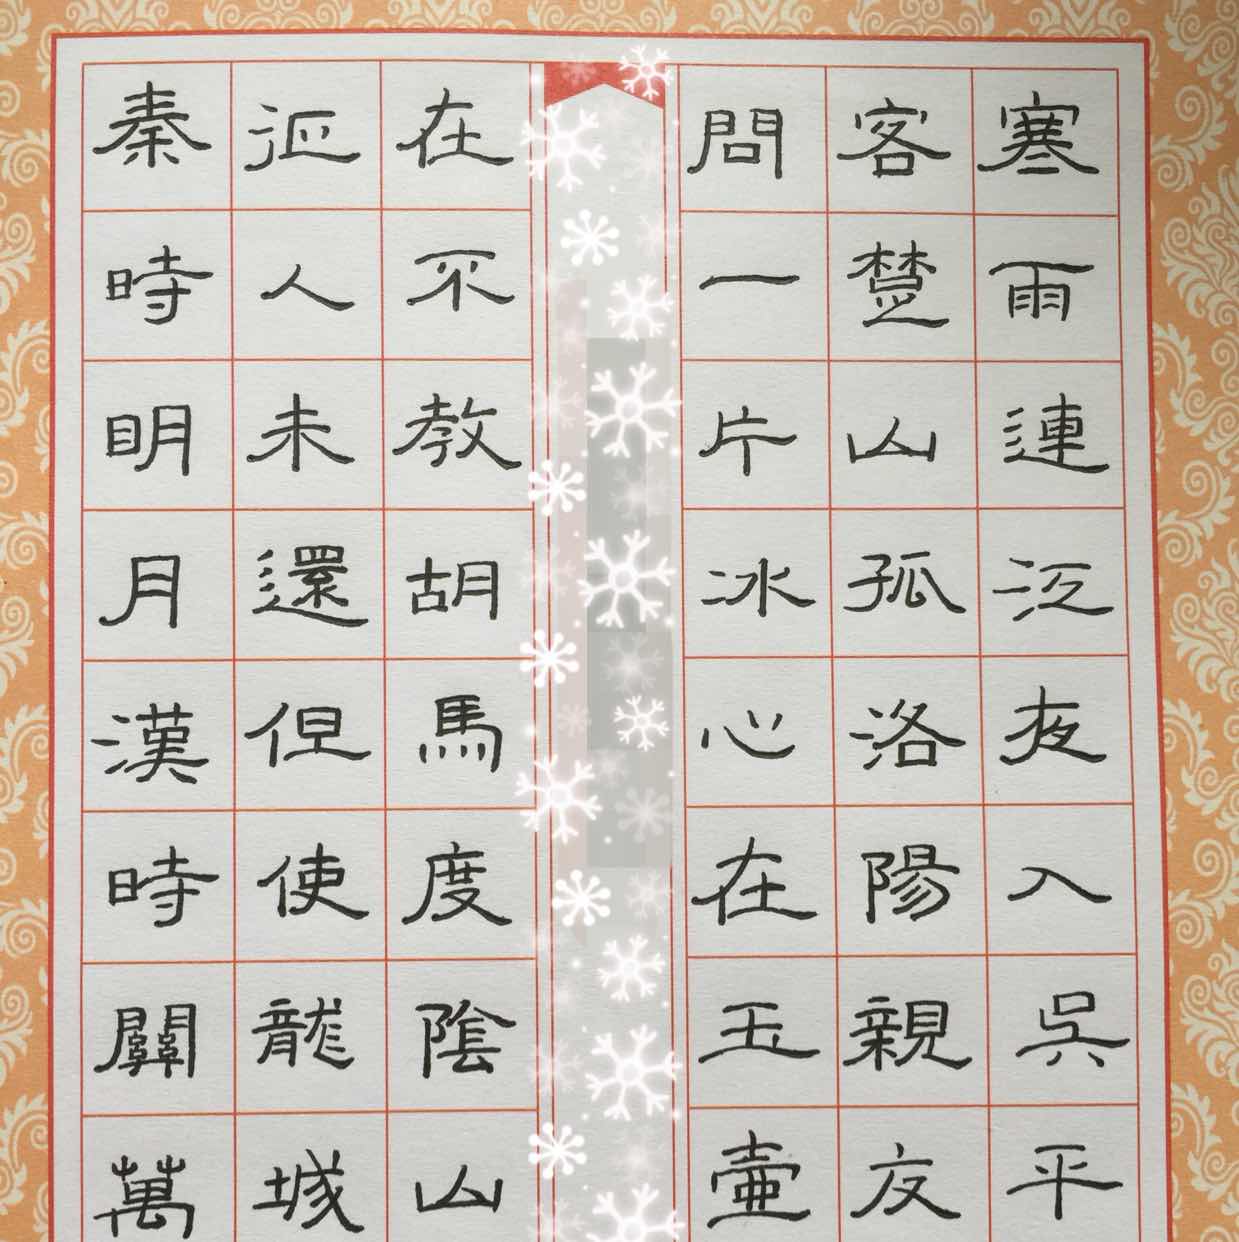 寒雨連江夜入吳平
客楚山孤洛陽親友
問一片冰心在玉壺
秦時明月漢時關萬
征人未還但使龍城
在不教胡馬度陰山